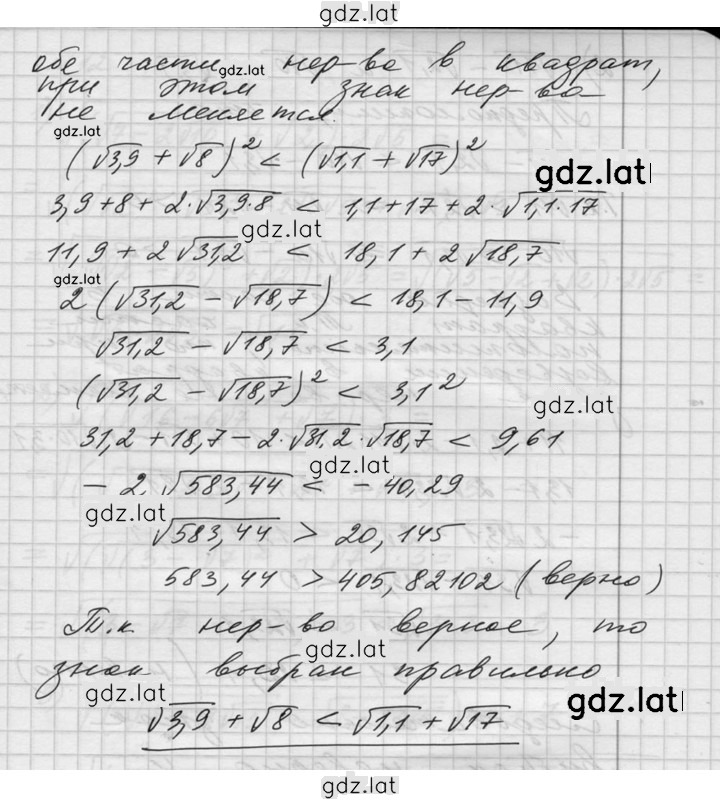 gdz.lat
обе части нер-ва в квадрат,
gdz.lat
при этом знак нер-ва
не меняется.
gdz.lat
(√3,9 + √8)² < (√1,1 + √17)²
gdz.lat
3,9 + 8 + 2·√3,9·8 < 1,1 + 17 + 2·√1,1·17
gdz.lat
11,9 + 2√31,2 < 18,1 + 2√18,7
gdz.lat
2(√31,2 − √18,7) < 18,1 − 11,9
√31,2 − √18,7 < 3,1
(√31,2 − √18,7)² < 3,1²
gdz.lat
31,2 + 18,7 − 2·√31,2·√18,7 < 9,61
gdz.lat
− 2·√583,44 < − 40,29
gdz.lat
√583,44 > 20,145
583,44 > 405,82102 (верно)
Т.к нер-во верное, то
gdz.lat
знак выбран правильно
gdz.lat
gdz.lat
√3,9 + √8 < √1,1 + √17
gdz.lat